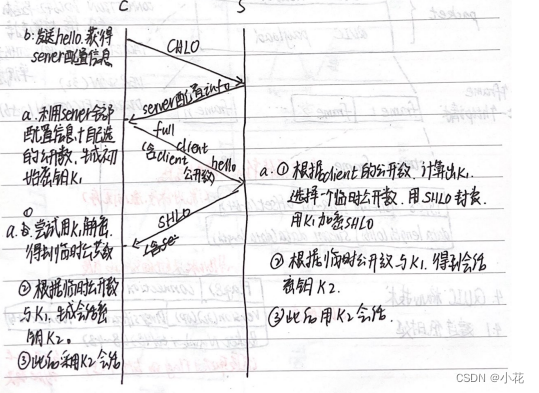 C S
b:发送hello.获得
server配置信息
CHLO
server配置info
a.利用server公开
配置信息+自选
的公开数,生成初
始密钥K1
full
client
hello
(含client
公开数)
a.① 根据client的公开数,计算出K1.
选择一个临时公开数.用SHLO封装.
用K1加密SHLO
SHLO
①
a. 尝试用K1解密.
得到临时公开数
含se
② 根据临时公开数与K1.得到会话
密钥K2.
② 根据临时公开数
与K1.生成会话密
钥K2。
③ 此后用K2会话.
③此后采用K2会话
CSDN @小花